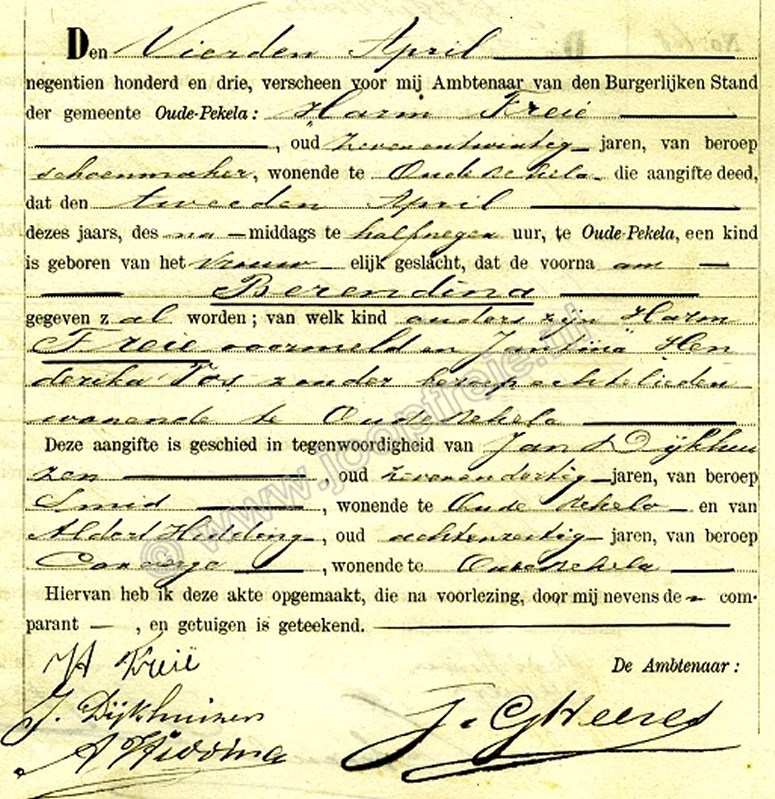 Den Vierden April
negentien honderd en drie, verscheen voor mij Ambtenaar van den Burgerlijken Stand
der gemeente Oude-Pekela: Harm Freie
, oud zevenentwintig jaren, van beroep
schoenmaker, wonende te Oude Pekela die aangifte deed,
dat den tweeden April
dezes jaars, des na-middags te halfnegen uur, te Oude-Pekela, een kind
is geboren van het vrouwelijk geslacht, dat de voornaam
Berendina
gegeven zal worden; van welk kind ouders zijn Harm
Freie voormeld en Jantina Hen
derika Vos zonder beroep echtelieden
wonende te Oude Pekela
Deze aangifte is geschied in tegenwoordigheid van Jan Dijkhui
zen, oud zevenendertig jaren, van beroep
Smid, wonende te Oude Pekela en van
Aldert Hidding, oud achtenzestig jaren, van beroep
Concierge, wonende te Oude Pekela
Hiervan heb ik deze akte opgemaakt, die na voorlezing, door mij nevens de com-
parant, en getuigen is geteekend.
H Freië
De Ambtenaar:
J. Dijkhuizen
A Hidding
J. G Heeres
© www.joopfreie.nl